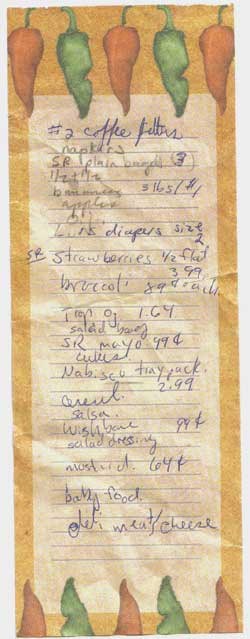 #2 coffee filters
napkins
SR plain bagels (3)
1/2 + 1/2
bananas 3 lbs/$1
apples
Luvs diapers size 2
SR Strawberries 1/2 flat
3.99
broccoli 89¢ each
Trop OJ 1.64
salad bag
SR mayo 99¢
cukes
Nabisco tiny pack.
cereal 2.99
salsa.
Wishbone 99¢
salad dressing
mustard. 64¢
baby food.
deli meat/cheese